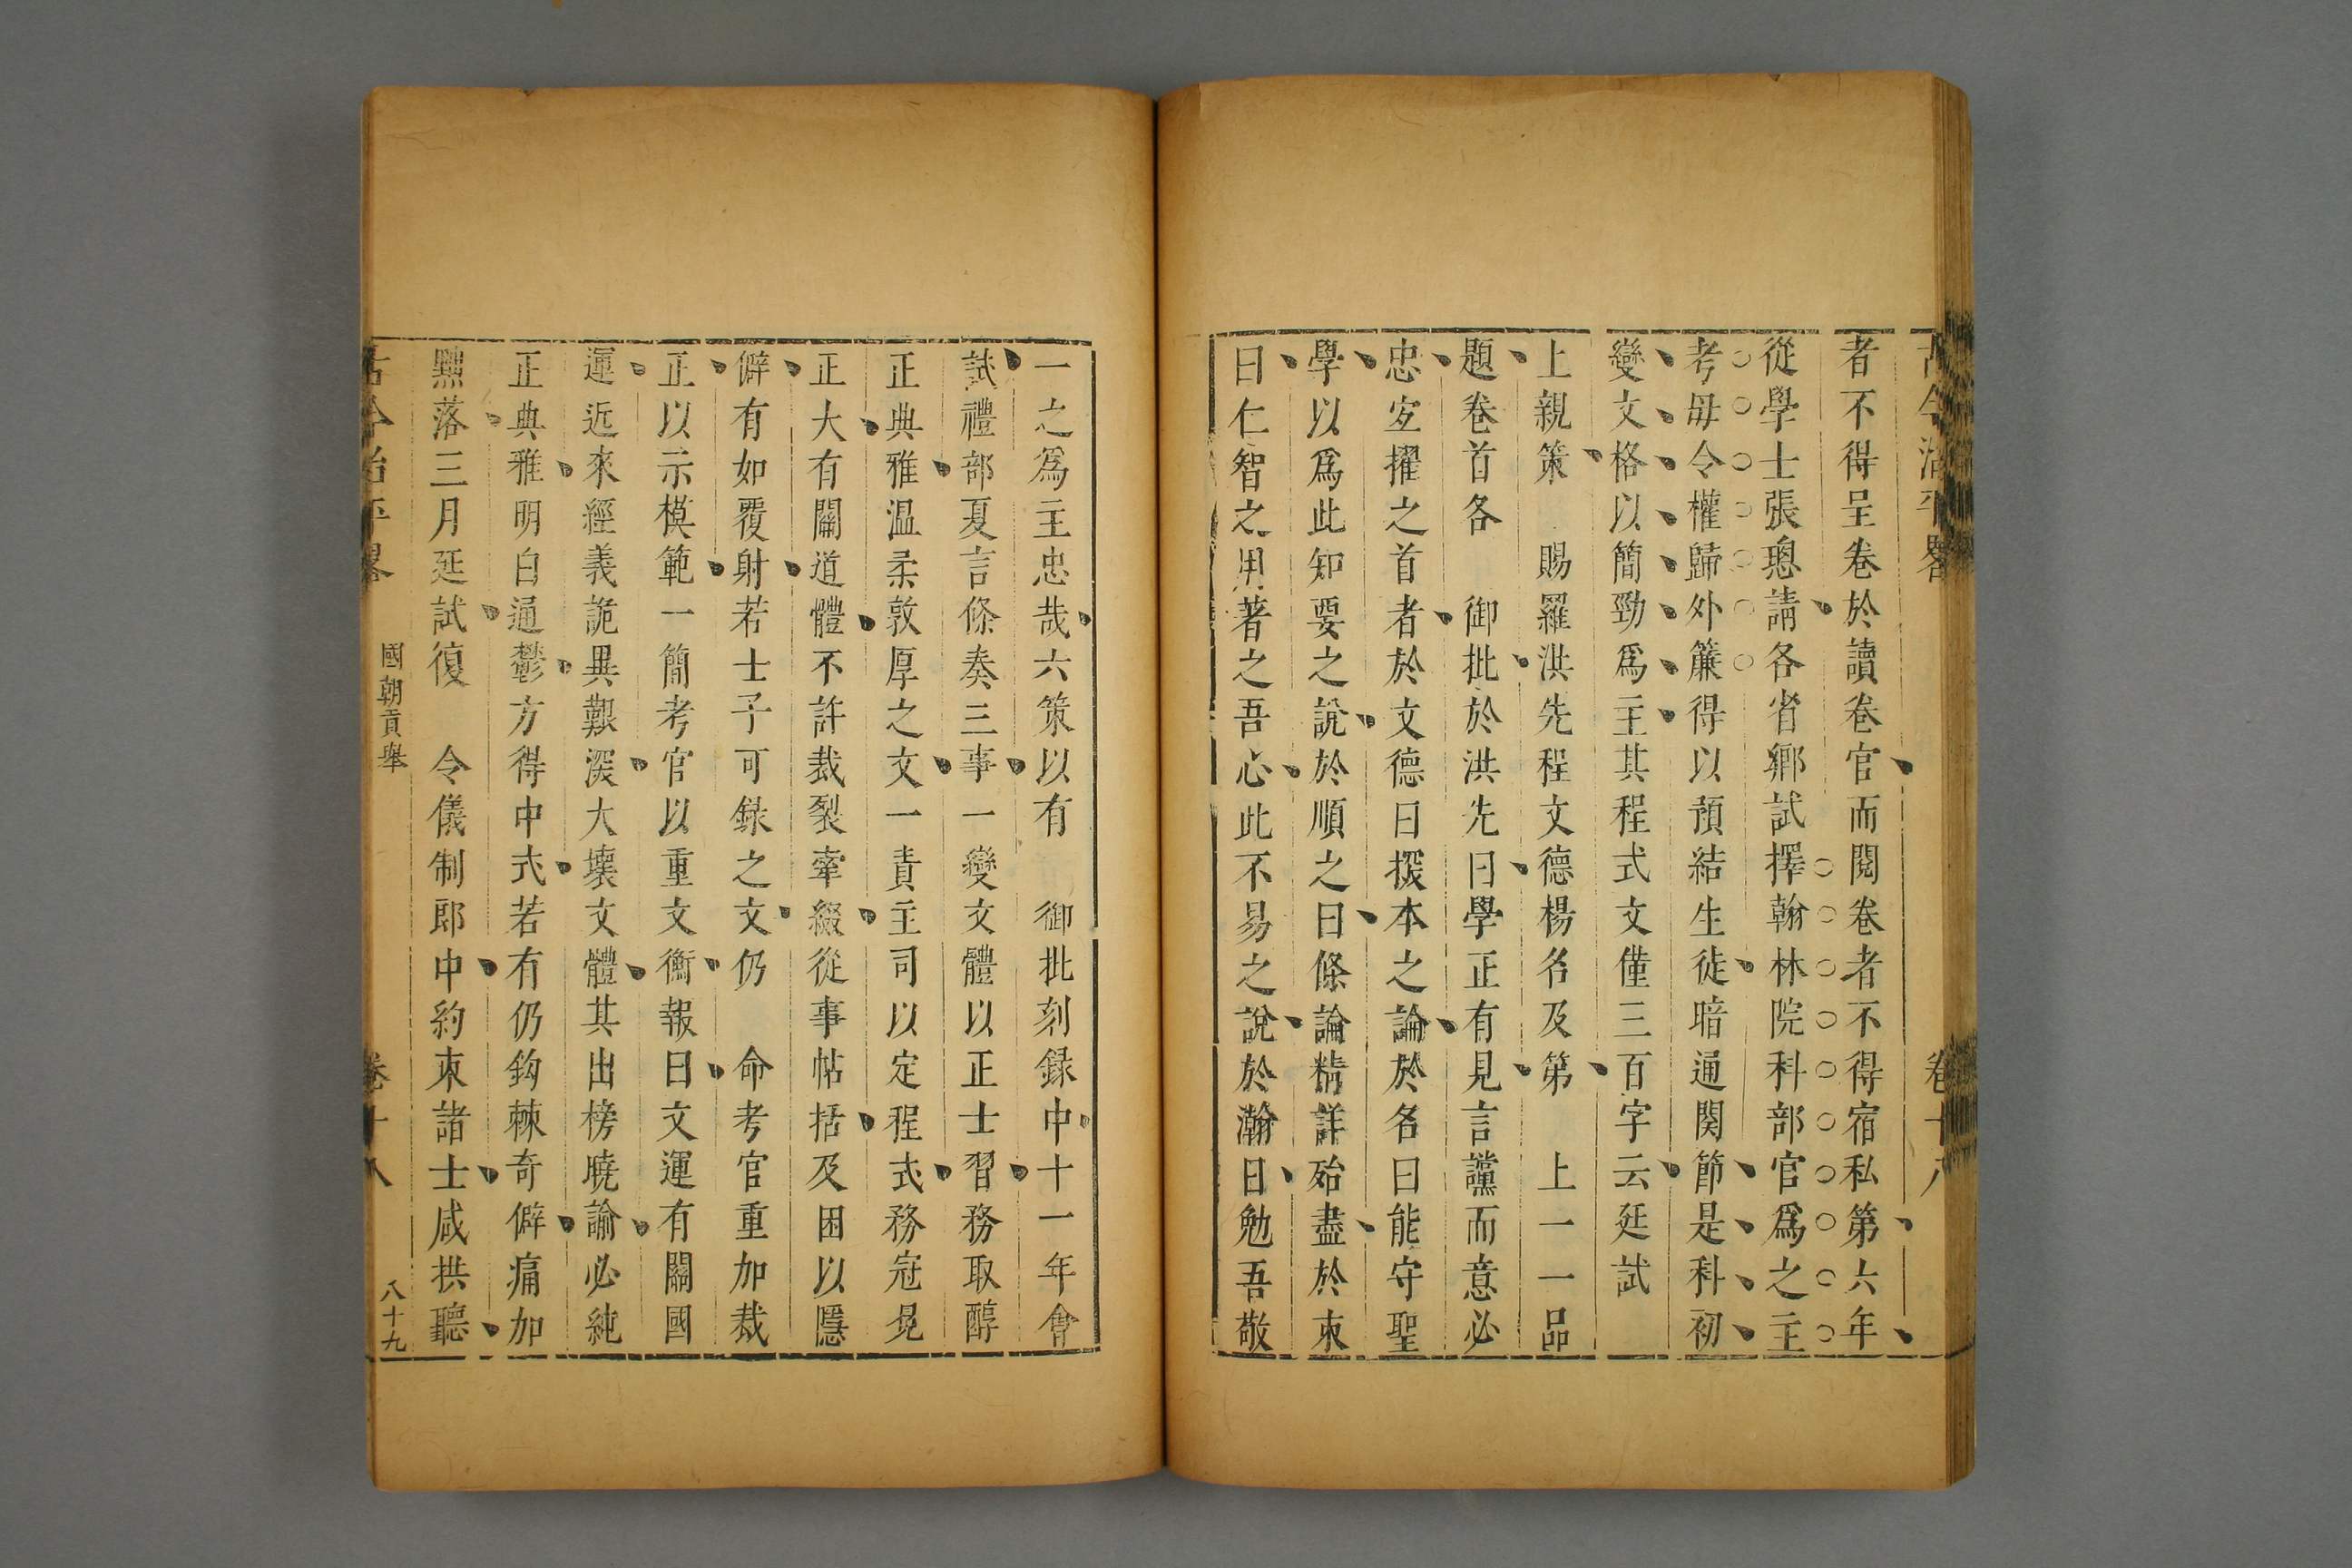 古今治平畧 卷十八
者不得呈卷於讀卷官而閱卷者不得宿私第六年
從學士張璁請各省鄉試擇翰林院科部官爲之主
考毋令權歸外簾得以預結生徒暗通関節是科初
變文格以簡勁爲主其程式文僅三百字云廷試
上親策 賜羅洪先程文德楊名及第 上一一品
題卷首各 御批於洪先曰學正有見言讜而意必
忠宐擢之首者於文德曰探本之論於名曰能守聖
學以爲此知要之說於順之曰條論精詳殆盡於束
曰仁智之用著之吾心此不易之說於瀚曰勉吾敬
一之爲主忠哉六策以有 御批刻録中十一年會
試禮部夏言條奏三事一變文體以正士習務取醇
正典雅温柔敦厚之文一責主司以定程式務冠冕
正大有關道體不許裁裂牽綴從事帖括及困以隱
僻有如覆射若士子可録之文仍 命考官重加裁
正以示模範一簡考官以重文衡報曰文運有關國
運近來經義詭異艱深大壞文體其出榜曉諭必純
正典雅明白通鬯方得中式若有仍鈎棘奇僻痛加
黜落三月廷試復 令儀制郎中約束諸士咸拱聽
古今治平畧 國朝貢舉 卷十八 八十九